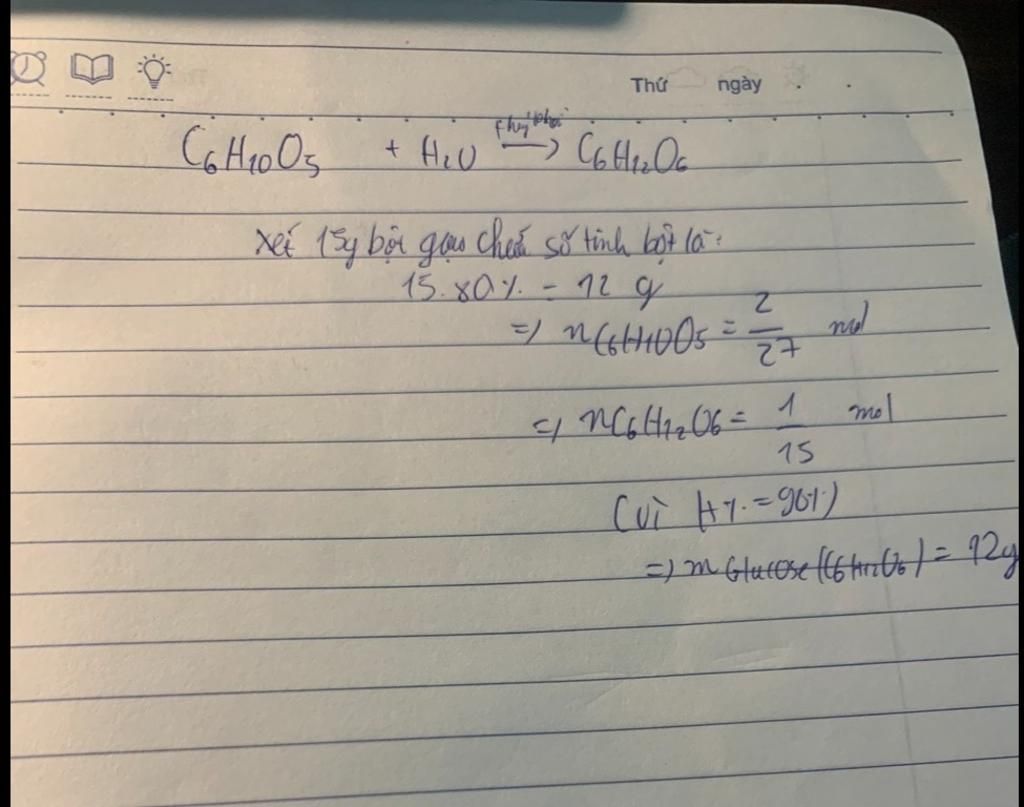 Thứ ngày
C6H10O5 + H2O thuỷ phân → C6H12O6
Xét 15g bột gạo chứa số tinh bột là:
15.80% = 12 g
=> nC6H10O5 = 2/27 mol
=> nC6H12O6 = 1/15 mol
(vì H% = 90%)
=> m Glucose (C6H12O6) = 12g